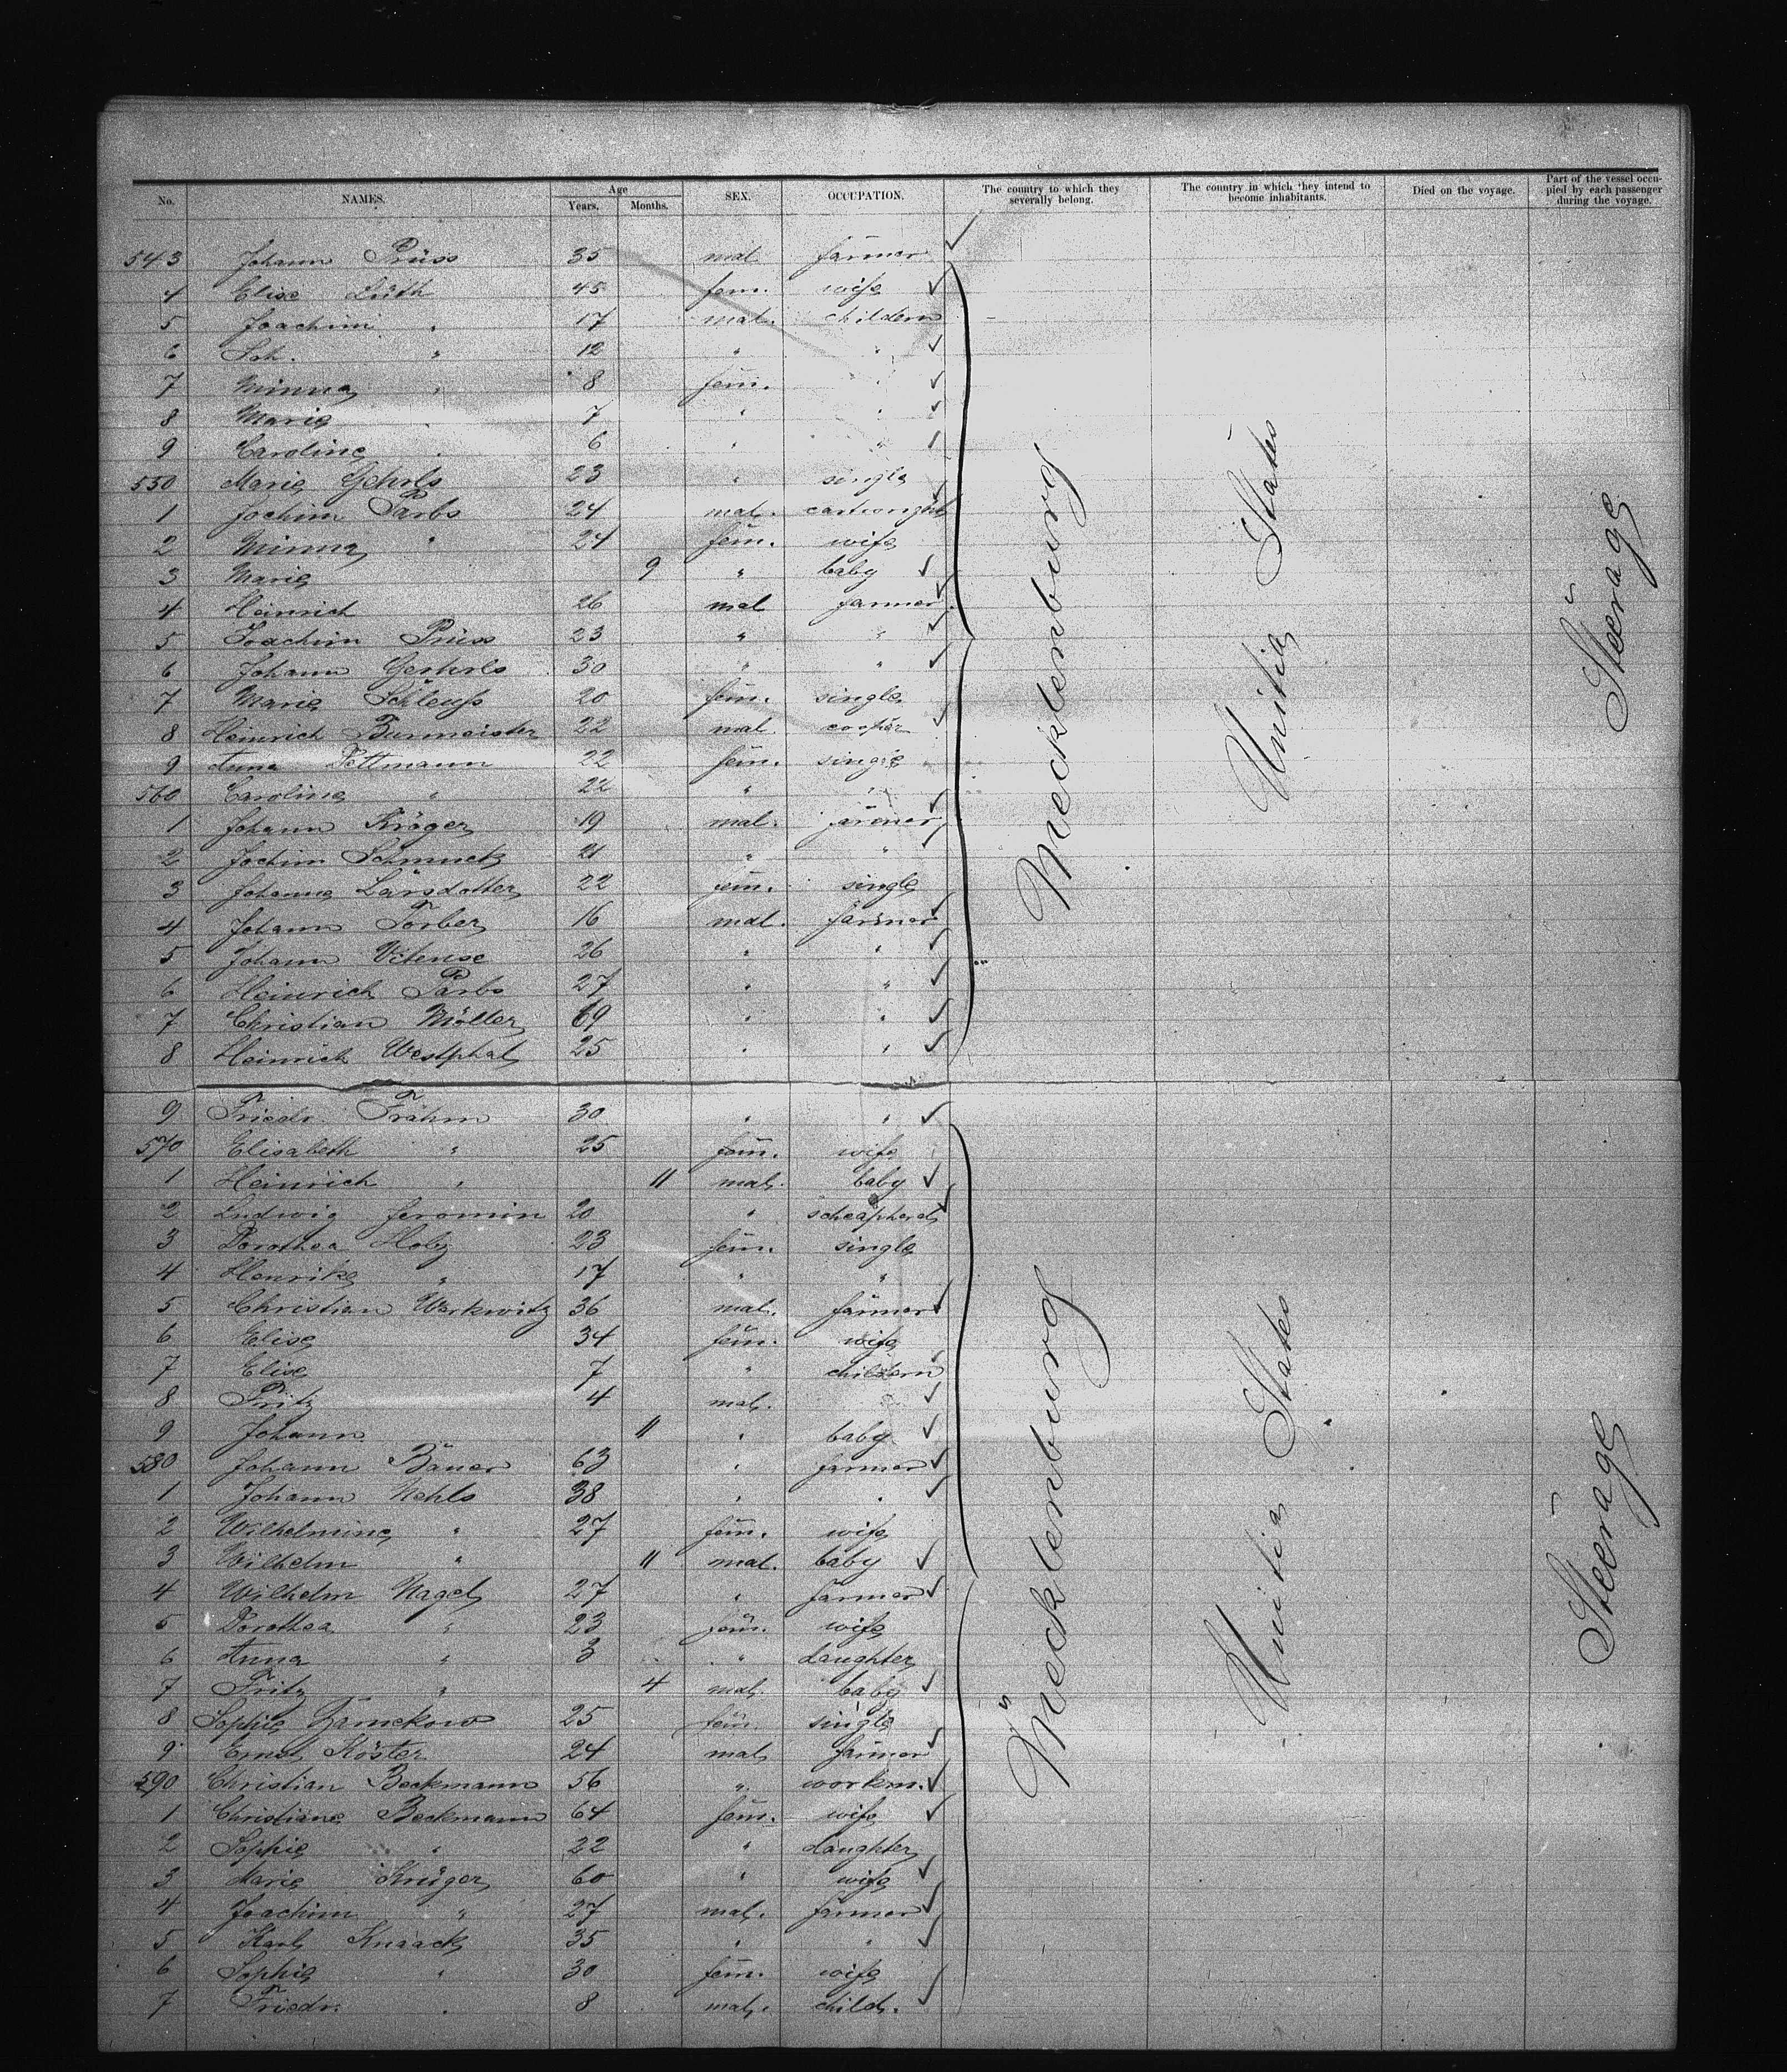 No. NAMES. Age Years. Months. SEX. OCCUPATION. The country to which they severally belong. The country in which they intend to become inhabitants. Died on the voyage. Part of the vessel occupied by each passenger during the voyage.
543 Johann Prüss 35 mal farmer
4 Elise Lüth 45 fem. wife
5 Joachim " 17 mal. childern
6 Joh. " 12 " "
7 Minna " 8 fem. "
8 Marie " 7 " "
9 Caroline " 6 " "
550 Marie Gehrls 23 " single
1 Jochim Parbs 24 mal. cartwright
2 Minna " 24 fem. wife
3 Marie 9 " baby
4 Heinrich 26 mal farmer
5 Joachim Prüss 23 " "
6 Johann Gerhrls 30 " "
7 Marie Schleuss 20 fem. single
8 Heinrich Burmeister 22 mal cooper
9 Anna Dettmann 22 fem. single
560 Caroline " 22 " "
1 Johann Kröger 19 mal. farmer
2 Jochim Schmuck 21 " "
3 Johanna Larsdotter 22 fem. single
4 Johann Törber 16 mal. farmer
5 Johann Vitense 26 " "
6 Heinrich Parbs 27 " "
7 Christian Möller 69 " "
8 Heinrich Westphal 25 " "
Mecklenburg United States Steerage
9 Friedr. Frahm 30 " "
570 Elisabeth " 25 fem. wife
1 Heinrich " 11 mal. baby
2 Ludwig Jeromin 20 " scheapherd
3 Dorothea Holz 23 fem. single
4 Henrike " 17 " "
5 Christian Warkwitz 36 mal. farmer
6 Elise 34 fem. wife
7 Elise 7 " childern
8 Fritz 4 mal. "
9 Johann 11 " baby
580 Johann Bauer 63 " farmer
1 Johann Nehls 38 " "
2 Wilhelmine " 27 fem. wife
3 Wilhelm " 11 mal. baby
4 Wilhelm Nagel 27 " farmer
5 Dorothea " 23 fem. wife
6 Anna " 3 " daughter
7 Fritz " 4 mal. baby
8 Sophie Garnckow 25 fem. single
9 Ernst Köster 24 mal. farmer
590 Christian Beckmann 56 " workm.
1 Christiane Beckmann 64 fem. wife
2 Sophie " 22 " daughter
3 Marie Krüger 60 " wife
4 Joachim " 27 mal. farmer
5 Karl Knaack 35 " "
6 Sophie " 30 fem. wife
7 Friedr. " 8 mal. child.
Mecklenburg United States Steerage